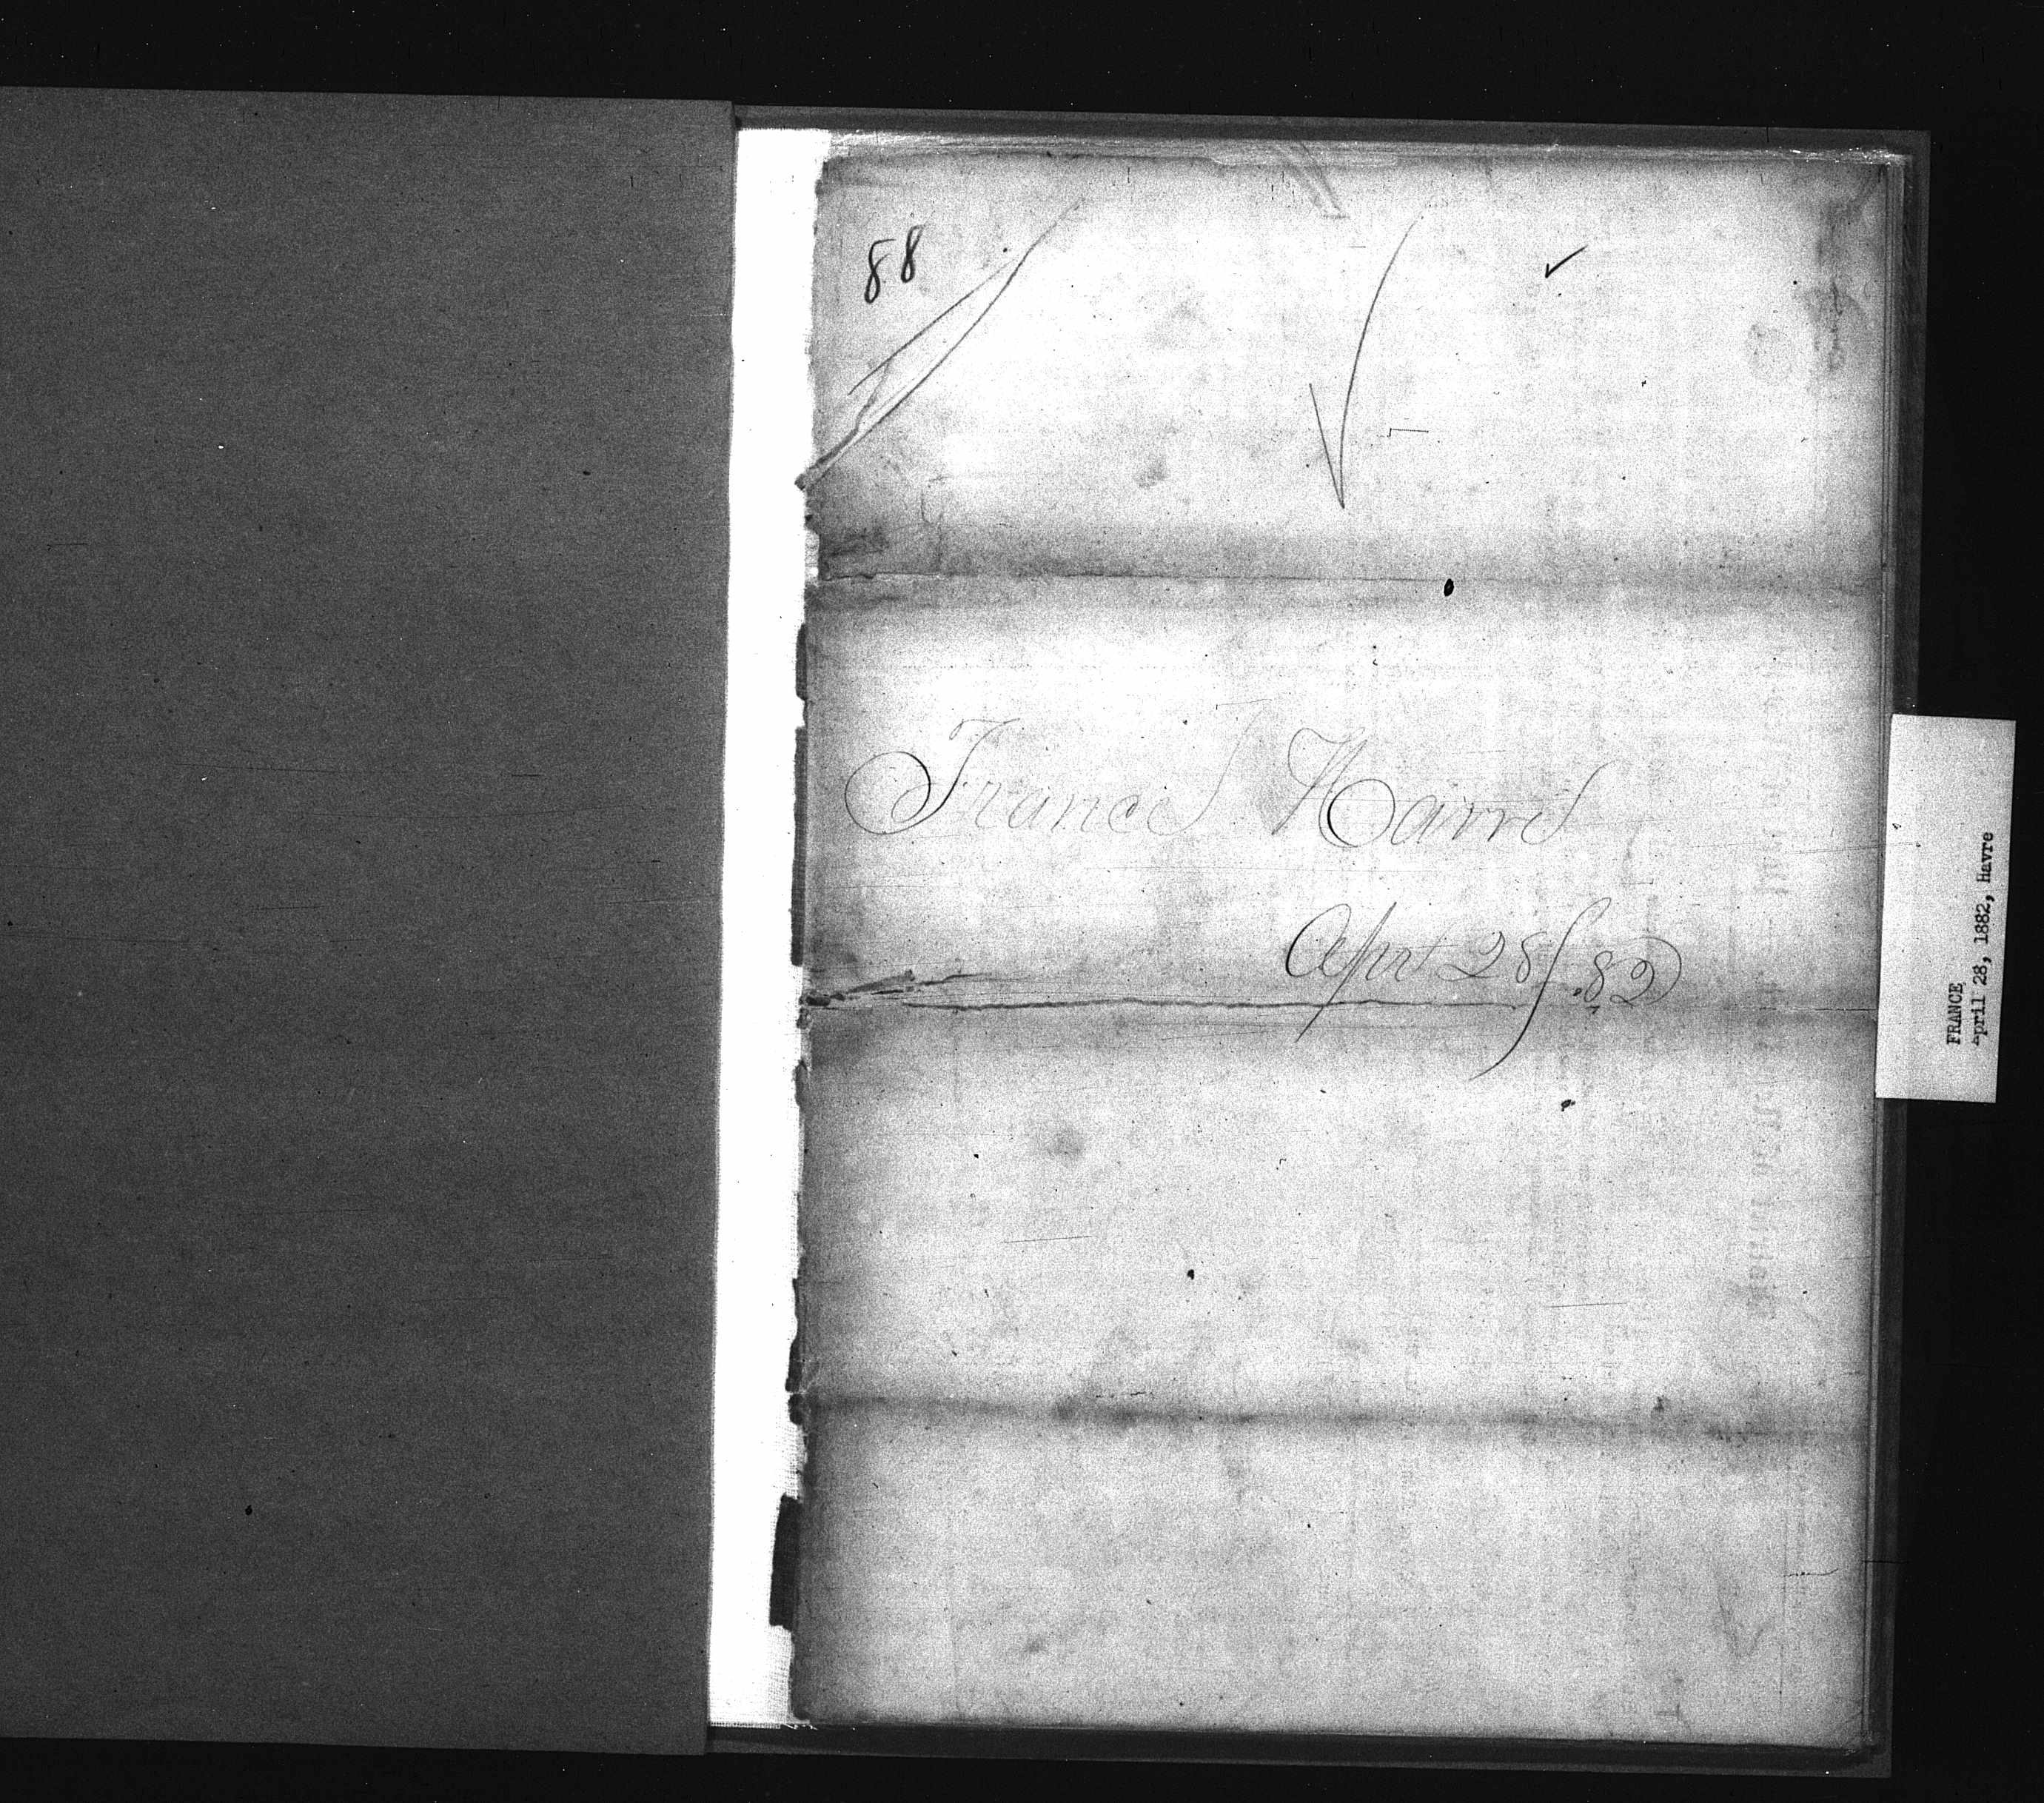 88
France Havre
Aprl 28/82
FRANCE
April 28, 1882, Havre